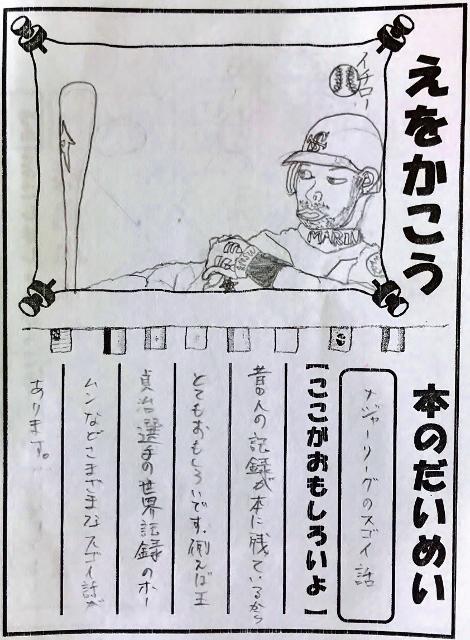 えをかこう
イチロー
S
MARIN
本のだいめい
メジャーリーグのスゴイ話
【ここがおもしろいよ】
昔の人の記録が本に残っているから
とてもおもしろいです。例えば王
貞治選手の世界記録のホー
ムンなどさまざまなスゴイ話が
あります。